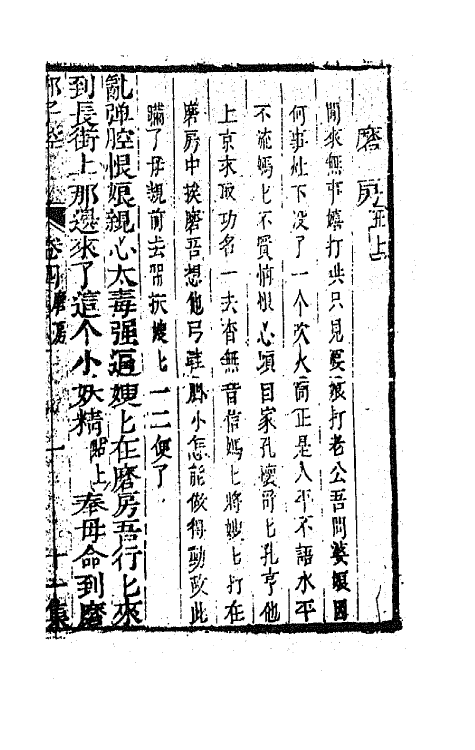 磨房 丑上
閒來無事嬉打拱只見婆娘打老公吾問婆娘因
何事灶下没了一个吹火筒正是人平不語水平
不流媽匕不賢惱恨心頭目家孔懷哥匕孔亨他
上京求取功名一去杳無音信媽匕將嫂匕打在
磨房中挨磨吾想他弓鞋脚小怎能做得動故此
瞞了母親前去帮扶嫂匕一二便了
亂弹腔恨娘親心太毒强逼嫂匕在磨房吾行匕來
到長街上那邊來了這个小妖精 貼上 奉母命到磨
卷四 磨房 一 十一集